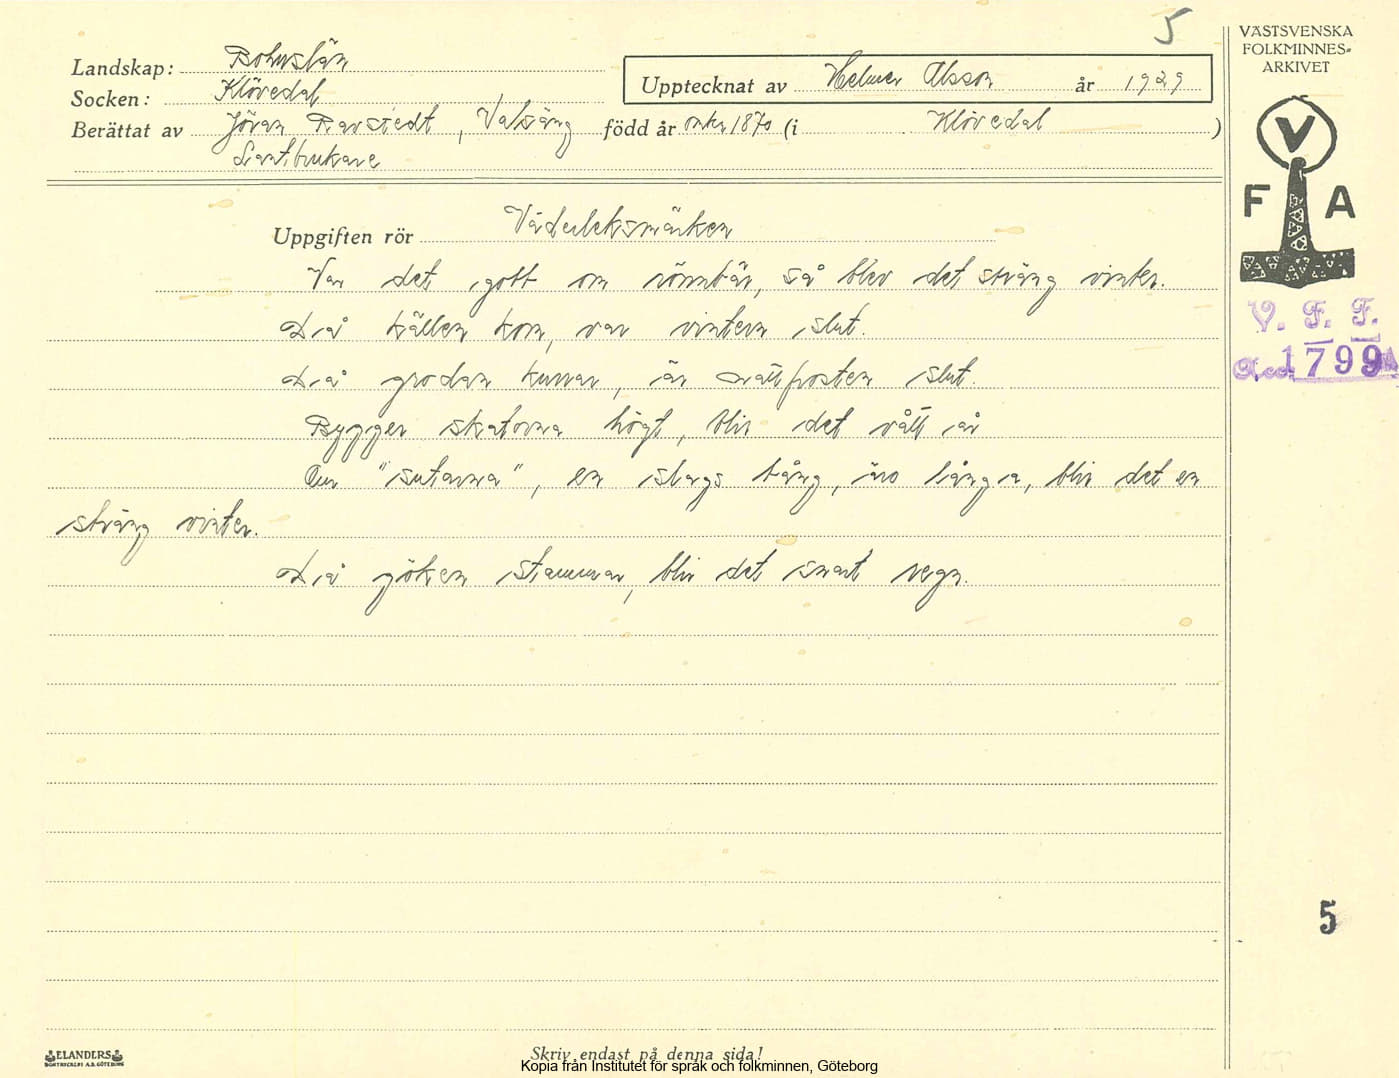 5
VÄSTSVENSKA
FOLKMINNES-
ARKIVET
Landskap: Bohuslän
Socken: Klövedal
Upptecknat av Helmer Olsson år 1929
Berättat av Jöran Ravstedt, Valsäng född år omkr 1870 (i Klövedal)
Lantbrukare
V
F A
Uppgiften rör Väderleksmärken
Var det gott om rönnbär, så blev det sträng vinter.
Då källen kom, var vintern slut.
Då grodan kurrar, är nattfrosten slut.
Bygger skatorna högt, blir det vått år
Om "sutarna", en slags tång, äro långa, blir det en
sträng vinter.
Då göken stammar, blir det snart regn.
V. F. F.
Acc. 1799
5
ELANDERS
BOKTRYCKERI A.B. GÖTEBORG
Skriv endast på denna sida!
Kopia från Institutet för språk och folkminnen, Göteborg